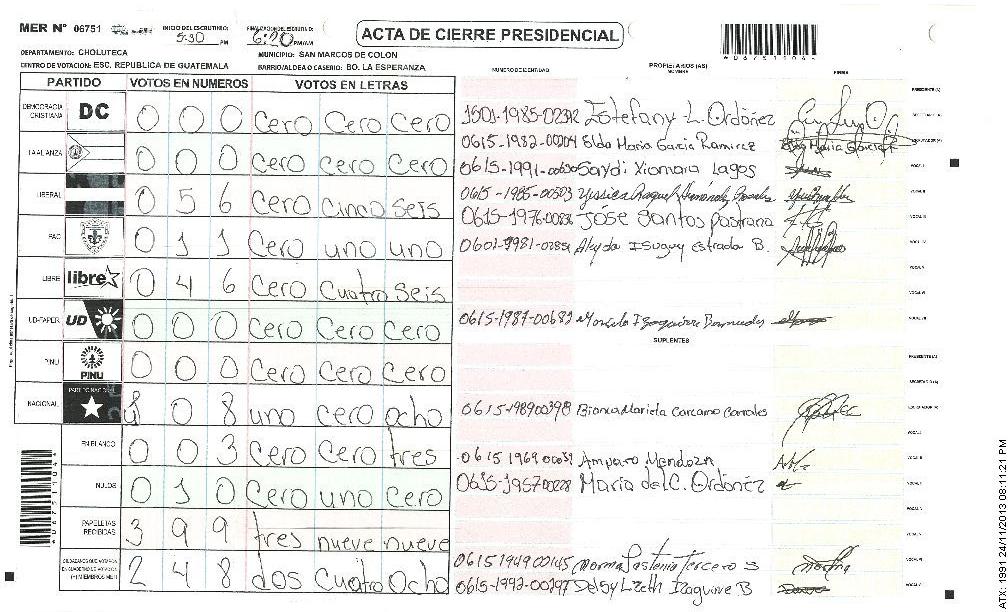 MER Nº 06751 INICIO DEL ESCRUTINIO: 5:30 PM FINALIZACION DEL ESCRUTINIO: 6:20 PM/AM ACTA DE CIERRE PRESIDENCIAL
DEPARTAMENTO: CHOLUTECA MUNICIPIO: SAN MARCOS DE COLON
CENTRO DE VOTACIÓN: ESC. REPUBLICA DE GUATEMALA BARRIO/ALDEA O CASERIO: BO. LA ESPERANZA
NUMERO DE IDENTIDAD PROPIETARIOS (AS) NOMBRE FIRMA
PARTIDO VOTOS EN NUMEROS VOTOS EN LETRAS
DEMOCRACIA CRISTIANA DC 0 0 0 Cero Cero Cero
LA ALIANZA 0 0 0 Cero Cero Cero
LIBERAL 0 5 6 Cero Cinco Seis
PAC 0 1 1 Cero uno uno
LIBRE libre 0 4 6 Cero Cuatro Seis
UD-FAPER UD 0 0 0 Cero Cero Cero
PINU PINU 0 0 0 Cero Cero Cero
NACIONAL PARTIDO NACIONAL 0 8 uno cero ocho
EN BLANCO 0 0 3 Cero Cero tres
NULOS 0 1 0 Cero uno Cero
PAPELETAS RECIBIDAS 3 9 9 tres nueve nueve
CIUDADANOS QUE VOTARON 2 4 8 dos Cuatro Ocho
1501-1985-02312 Estefany L. Ordóñez
0615-1982-00204 Elda Maria Garcia Ramirez
0615-1991-00630 Saydi Xiomara Lagos
0615-1985-00503 Yessica Raquel Hernández
0615-1976-00836 Jose Santos Pastrana
0601-1981-02851 Aleyda Isuguy Estrada B.
0615-1987-00682 Marcela Izaguirre Bermudez
SUPLENTES
0615-1989 00398 Bianca Mariela Carcamo Corrales
0615 1969 00039 Amparo Mendoza
0615-1957-00228 Maria del C. Ordóñez
0615 1949 00145 Norma Tercero S
0615-1992-00197 Delsy Lizeth Izaguirre B
ATX: 1991 24/11/2013 08:11:21 PM